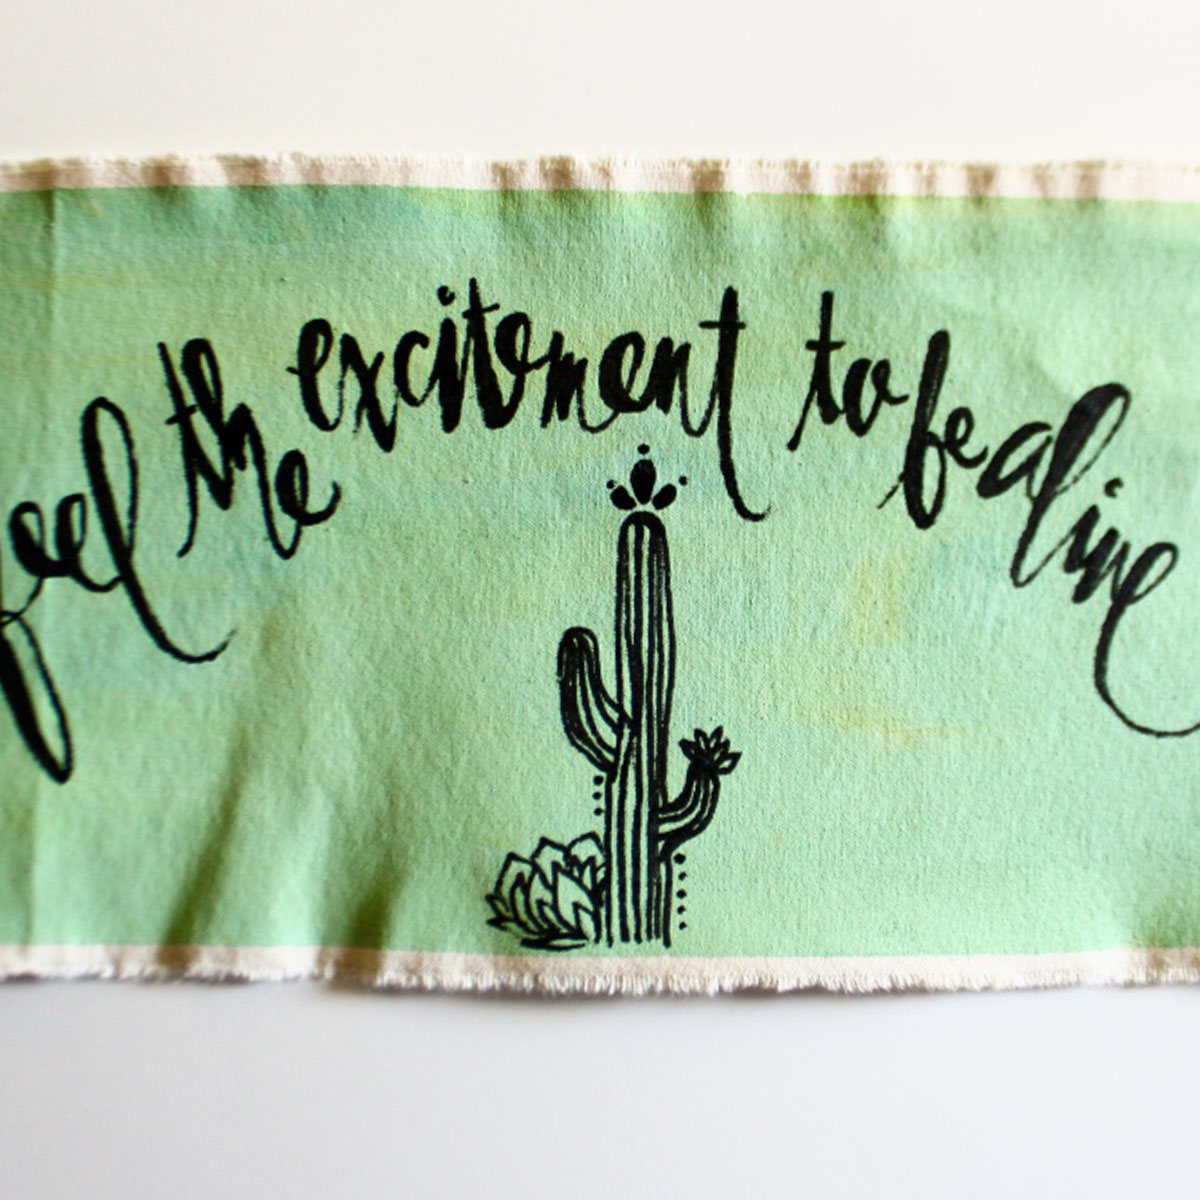 feel the excitement to be alive